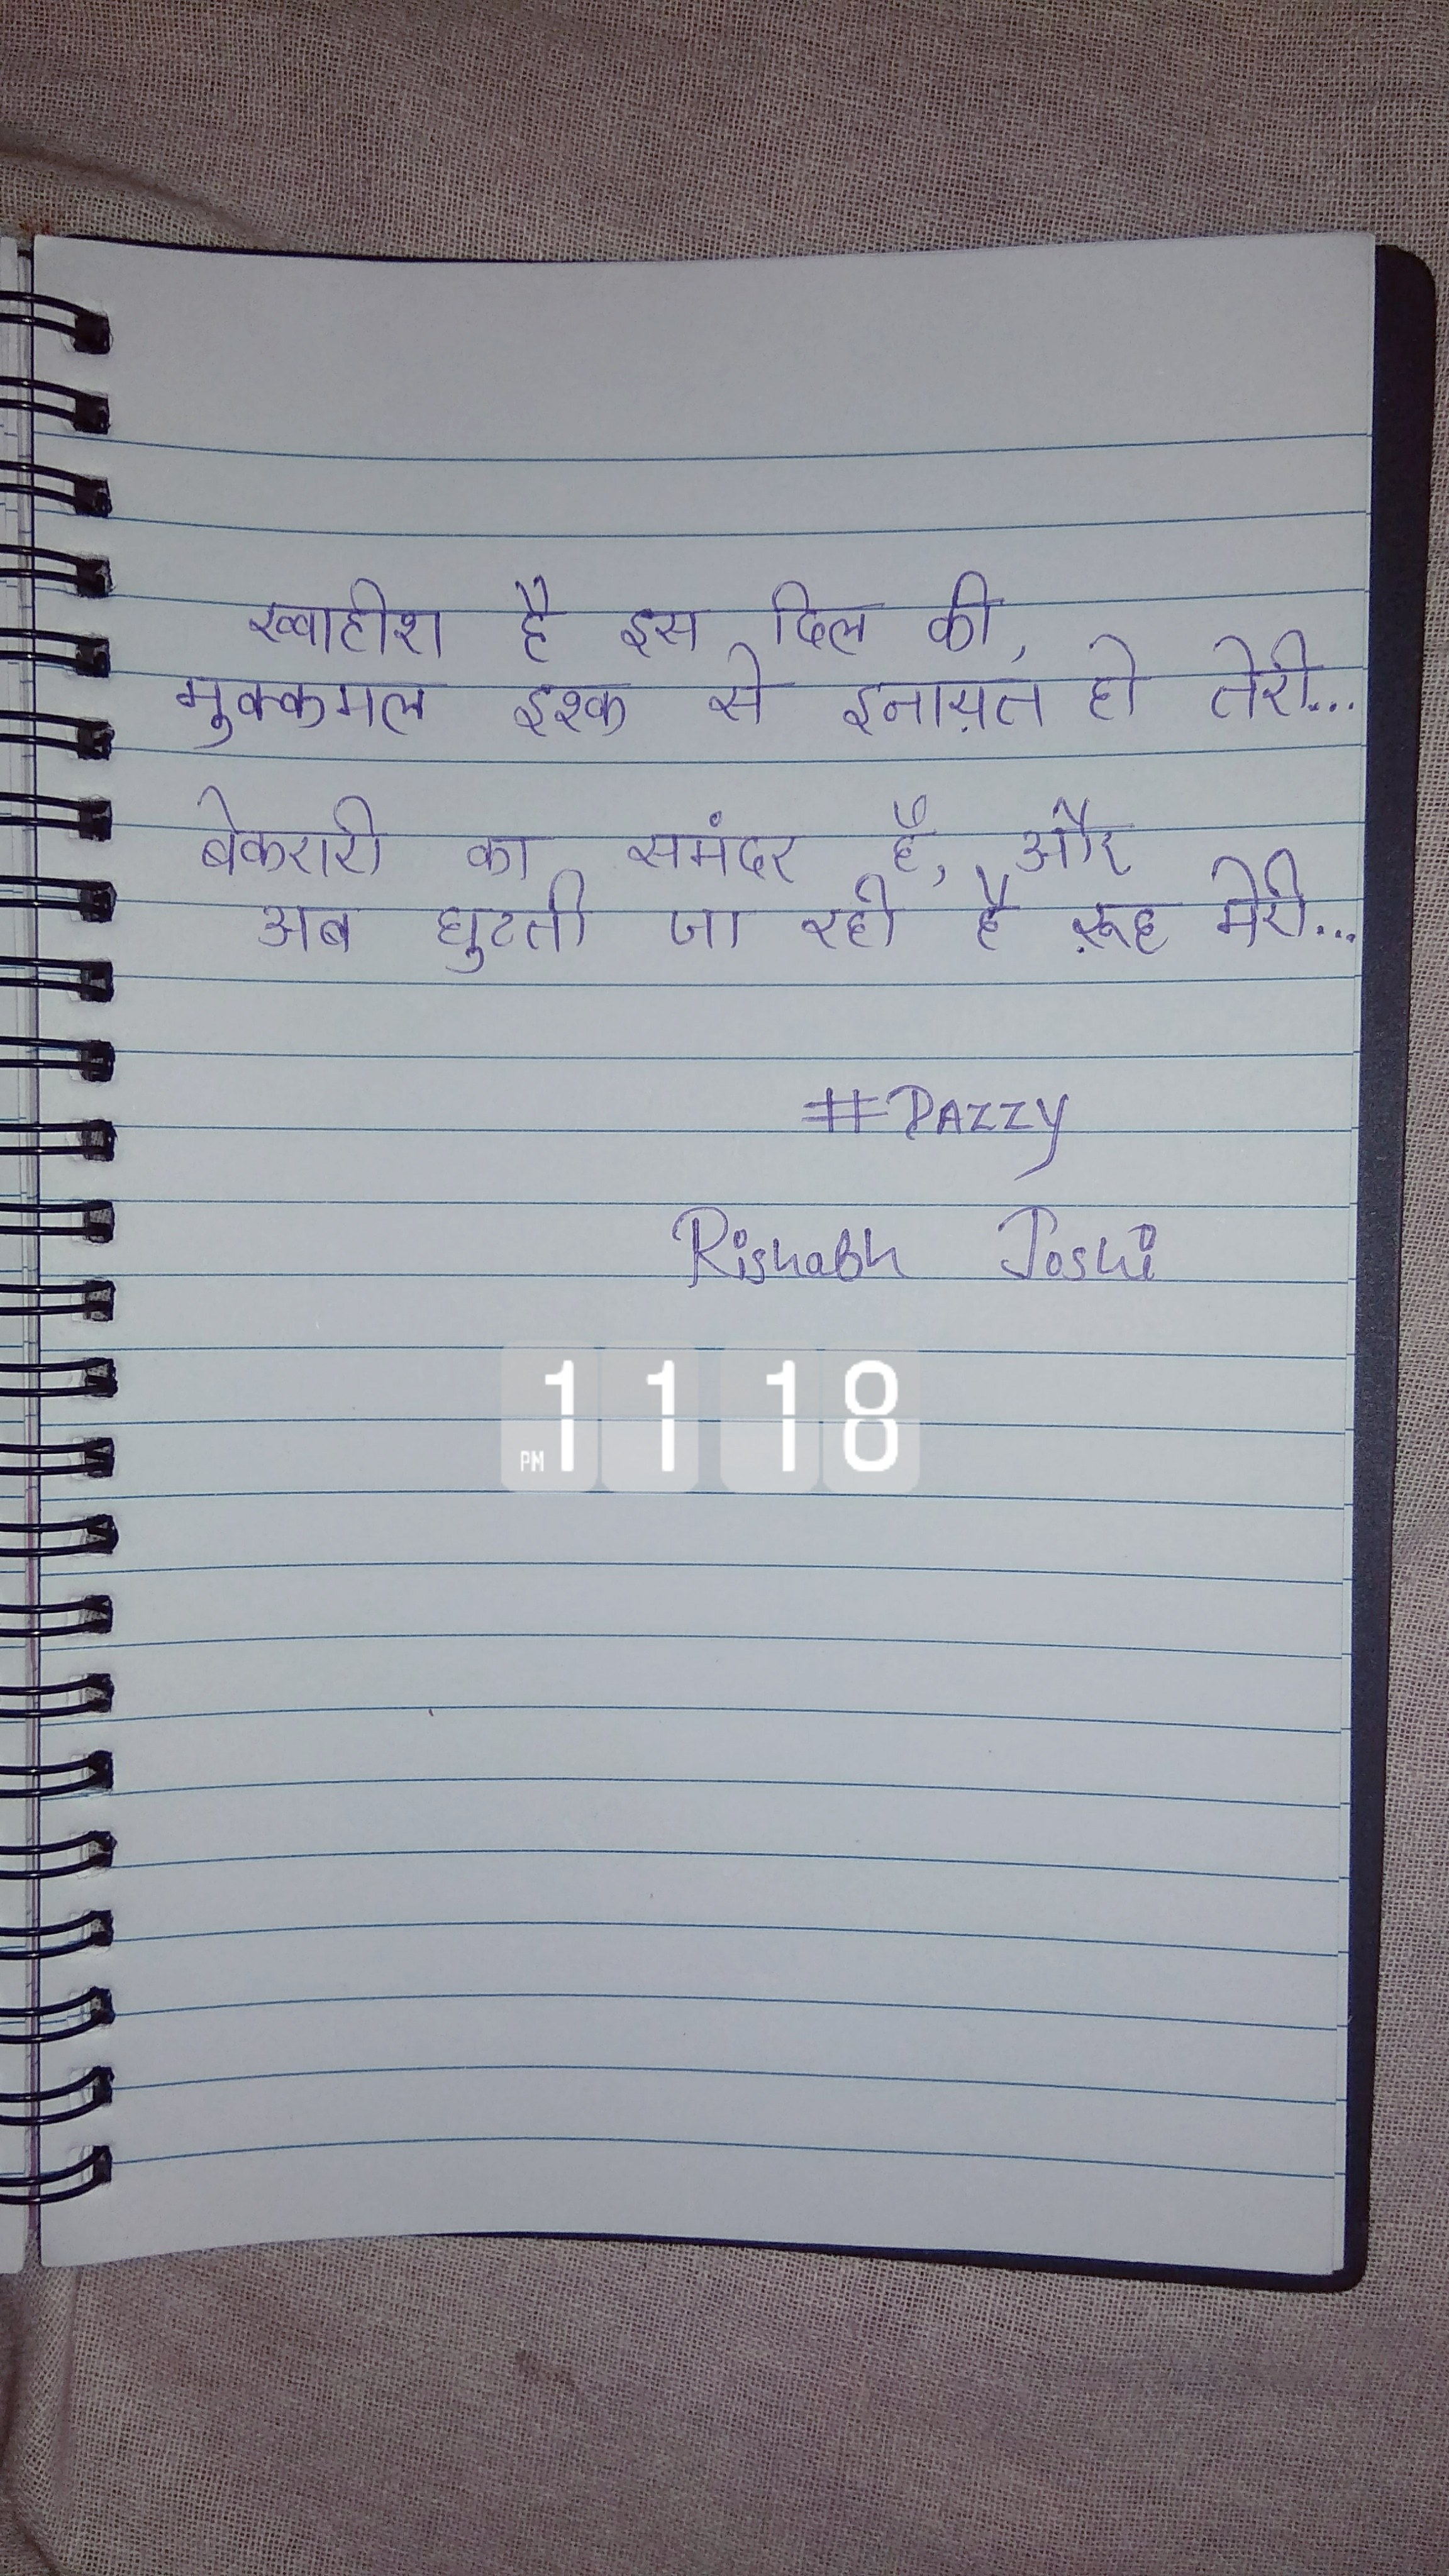 ख्वाहीश है इस दिल की,
मुक्कमल इश्क से इनाय़त हो तेरी...
बेकरारी का समंदर है, और
अब घुटती जा रही है रू़ह मेरी...
#DAZZY
Rishabh Joshi
PM 11 18